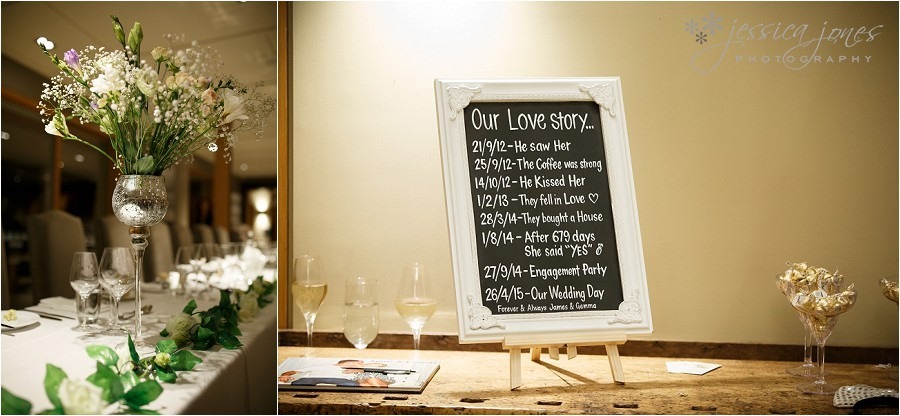 jessica jones
PHOTOGRAPHY
Our Love story...
21/9/12 - He saw Her
25/9/12 - The Coffee was strong
14/10/12 - He Kissed Her
1/2/13 - They fell in Love ♡
28/3/14 - They bought a House
1/8/14 - After 679 days
She said "YES"
27/9/14 - Engagement Party
26/4/15 - Our Wedding Day
Forever & Always James & Gemma